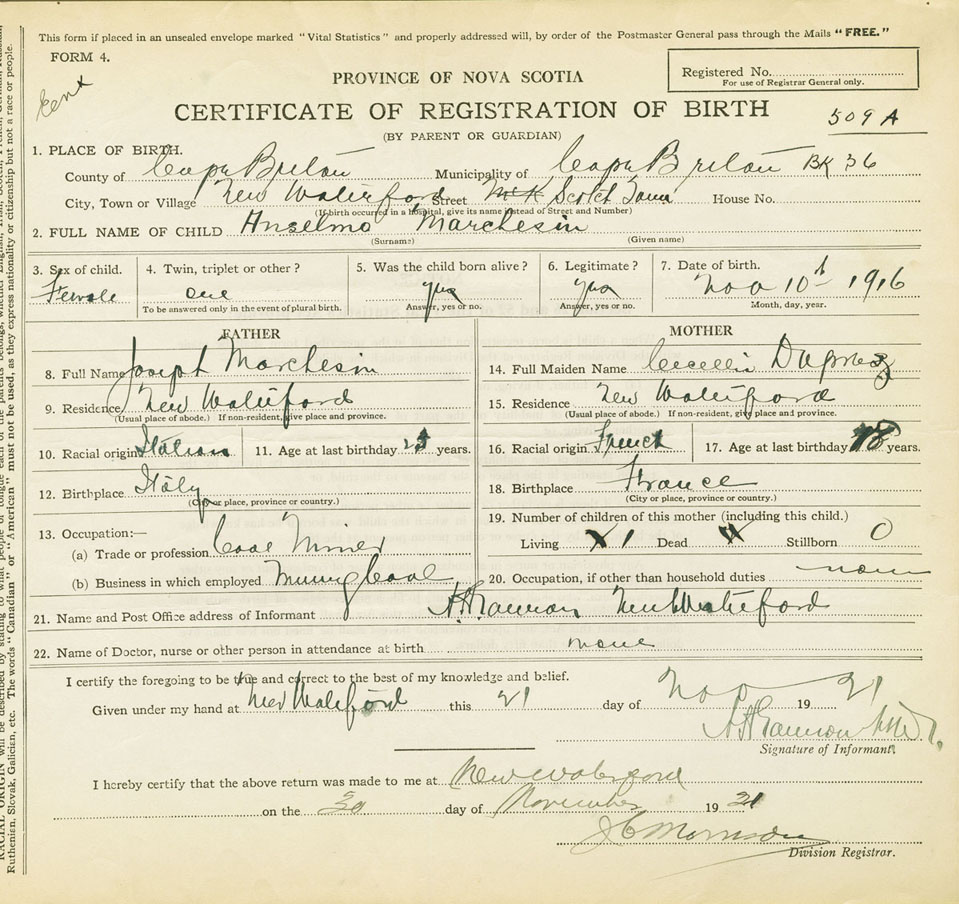 This form if placed in an unsealed envelope marked "Vital Statistics" and properly addressed will, by order of the Postmaster General pass through the Mails "FREE."
FORM 4.
Cent
PROVINCE OF NOVA SCOTIA
Registered No.
For use of Registrar General only.
CERTIFICATE OF REGISTRATION OF BIRTH
509 A
(BY PARENT OR GUARDIAN)
1. PLACE OF BIRTH.
County of Cape Breton Municipality of Cape Breton BK 36
City, Town or Village New Waterford Street Scotch Town House No.
(If birth occurred in a hospital, give its name instead of Street and Number)
2. FULL NAME OF CHILD Anselmo Marchesin
(Surname) (Given name)
3. Sex of child. 4. Twin, triplet or other? 5. Was the child born alive? 6. Legitimate? 7. Date of birth.
Female one yes yes Nov 10th 1916
To be answered only in the event of plural birth. Answer, yes or no. Answer, yes or no. Month, day, year.
FATHER
8. Full Name Joseph Marchesin
9. Residence New Waterford
(Usual place of abode.) If non-resident, give place and province.
10. Racial origin Italian 11. Age at last birthday years.
12. Birthplace Italy
(City or place, province or country.)
13. Occupation:—
(a) Trade or profession Coal Miner
(b) Business in which employed Mining Coal
MOTHER
14. Full Maiden Name Dupres
15. Residence New Waterford
(Usual place of abode.) If non-resident, give place and province.
16. Racial origin French 17. Age at last birthday 18 years.
18. Birthplace France
(City or place, province or country.)
19. Number of children of this mother (including this child.)
Living 1 Dead Stillborn 0
20. Occupation, if other than household duties none
21. Name and Post Office address of Informant New Waterford
22. Name of Doctor, nurse or other person in attendance at birth none
I certify the foregoing to be true and correct to the best of my knowledge and belief.
Given under my hand at New Waterford this 21 day of Nov 19 21
Signature of Informant.
I hereby certify that the above return was made to me at New Waterford
on the 30 day of November 19 21
J C Morrison
Division Registrar.